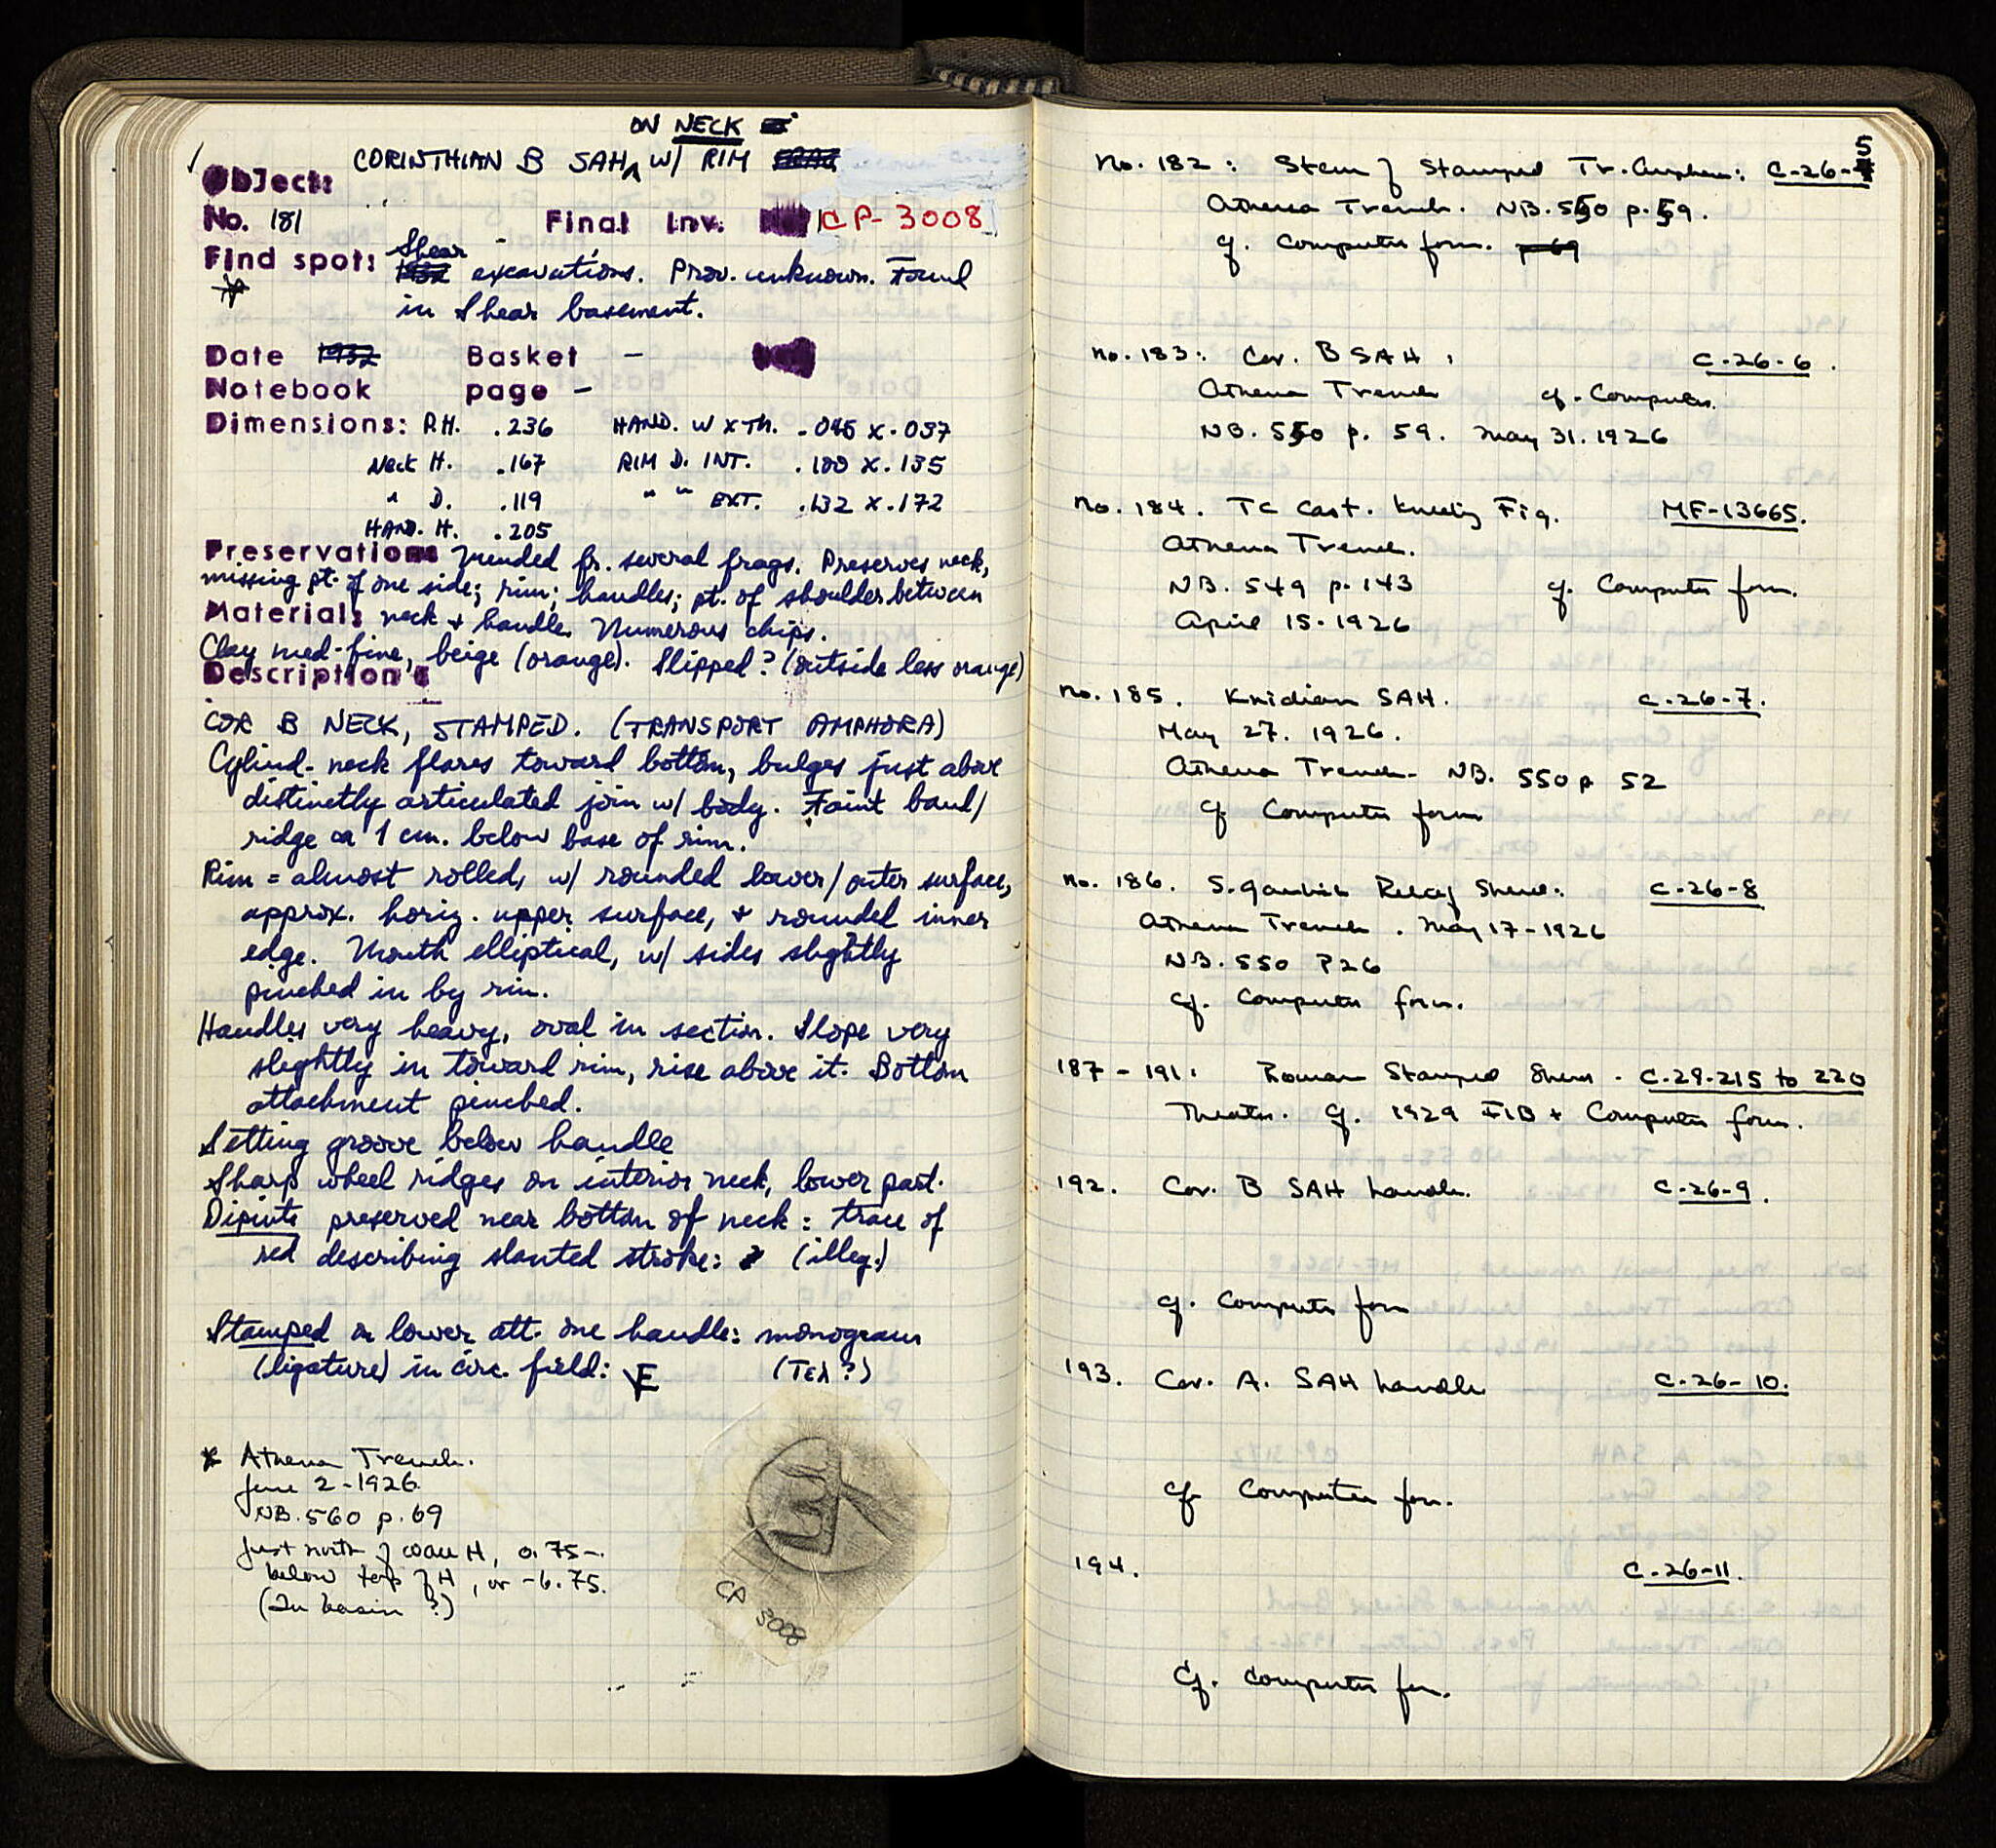 ON NECK
✓ CORINTHIAN B SAH ^ W/ RIM
Object:
No. 181 Final Inv. CP-3008
Find spot: Shear
1932 excavations. Prov. unknown. Found
in Shear basement.
Date 1932 Basket -
Notebook page -
Dimensions: P.H. .236 HAND. W x Th. .045 x .037
Neck H. .167 RIM D. INT. .100 x .135
" D. .119 " " EXT. .132 x .172
HAND. H. .205
Preservation: Mended fr. several frags. Preserves neck,
missing pt. of one side; rim; handles; pt. of shoulder between
Material: neck + handle. Numerous chips.
Clay med-fine, beige (orange). Slipped? (outside less orange)
Description:
COR B NECK, STAMPED. (TRANSPORT AMPHORA)
Cylind. neck flares toward bottom, bulges just above
distinctly articulated join w/ body. Faint band/
ridge ca 1 cm. below base of rim.
Rim = almost rolled, w/ rounded lower/outer surface,
approx. horiz. upper surface, + rounded inner
edge. Mouth elliptical, w/ sides slightly
pinched in by rim.
Handles very heavy, oval in section. Slope very
slightly in toward rim, rise above it. Bottom
attachment pinched.
Setting groove below handle
Sharp wheel ridges on interior neck, lower part.
Dipinto preserved near bottom of neck: trace of
red describing slanted stroke: (illeg.)
Stamped on lower att. one handle: monogram
(ligature) in circ. field: (TEΛ?)
* Athena Trench.
June 2-1926
NB. 560 p. 69
Just north of wall H, 0.75-.
below top of H, or -6.75.
(In basin?)
CP 3008
5
No. 182: Stem of Stamped Tr. Amphora: C-26-
Athena Trench. NB. 550 p. 59.
cf. Computer form. p 69
No. 183: Cor. B SAH, C-26-6.
Athena Trench cf. Computer.
NB. 550 p. 59. May 31. 1926
No. 184. TC Cast. Kneeling Fig. MF-13665.
Athena Trench.
NB. 549 p. 143 cf. Computer form.
April 15-1926
No. 185. Knidian SAH. C-26-7.
May 27. 1926.
Athena Trench- NB. 550 p 52
cf Computer form
No. 186. Relief Sherd: C-26-8
Athena Trench. May 17-1926
NB. 550 P26
cf. Computer form.
187-191: Roman Stamped Sherds. C-29-215 to 220
Theater. cf. 1929 FIB + Computer form.
192. Cor. B SAH handle. C-26-9.
cf. Computer form
193. Cor. A. SAH handle C-26-10.
cf Computer form.
194. C-26-11.
Cf. Computer form.